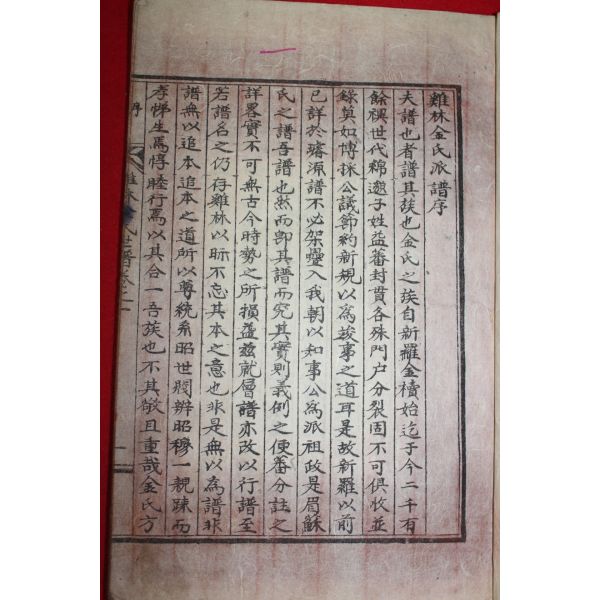 雞林金氏派譜序
夫譜也者譜其族也金氏之族自新羅金櫝始迄于今二千有
餘禩世代綿邈子姓益蕃封貫各殊門户分裂固不可俱收並
錄莫如博採公議節約新規以爲竣事之道耳是故新羅以前
已詳於璿源譜不必架疊入我朝以知事公爲派祖政是眉蘇
氏之譜吾譜也然而卽其譜而究其實則義例之便蕃分註之
詳畧實不可無古今時勢之所損益玆就曾譜亦改以行譜至
若譜名之仍存雞林以眎不忘其本之意也非是無以為譜非
譜無以追本追本之道所以尊統系昭世閥辨昭穆一親踈而
孝悌生焉惇睦行焉以其合一吾族也不其敬且重哉金氏方
序
雞林金氏世譜卷之一
一